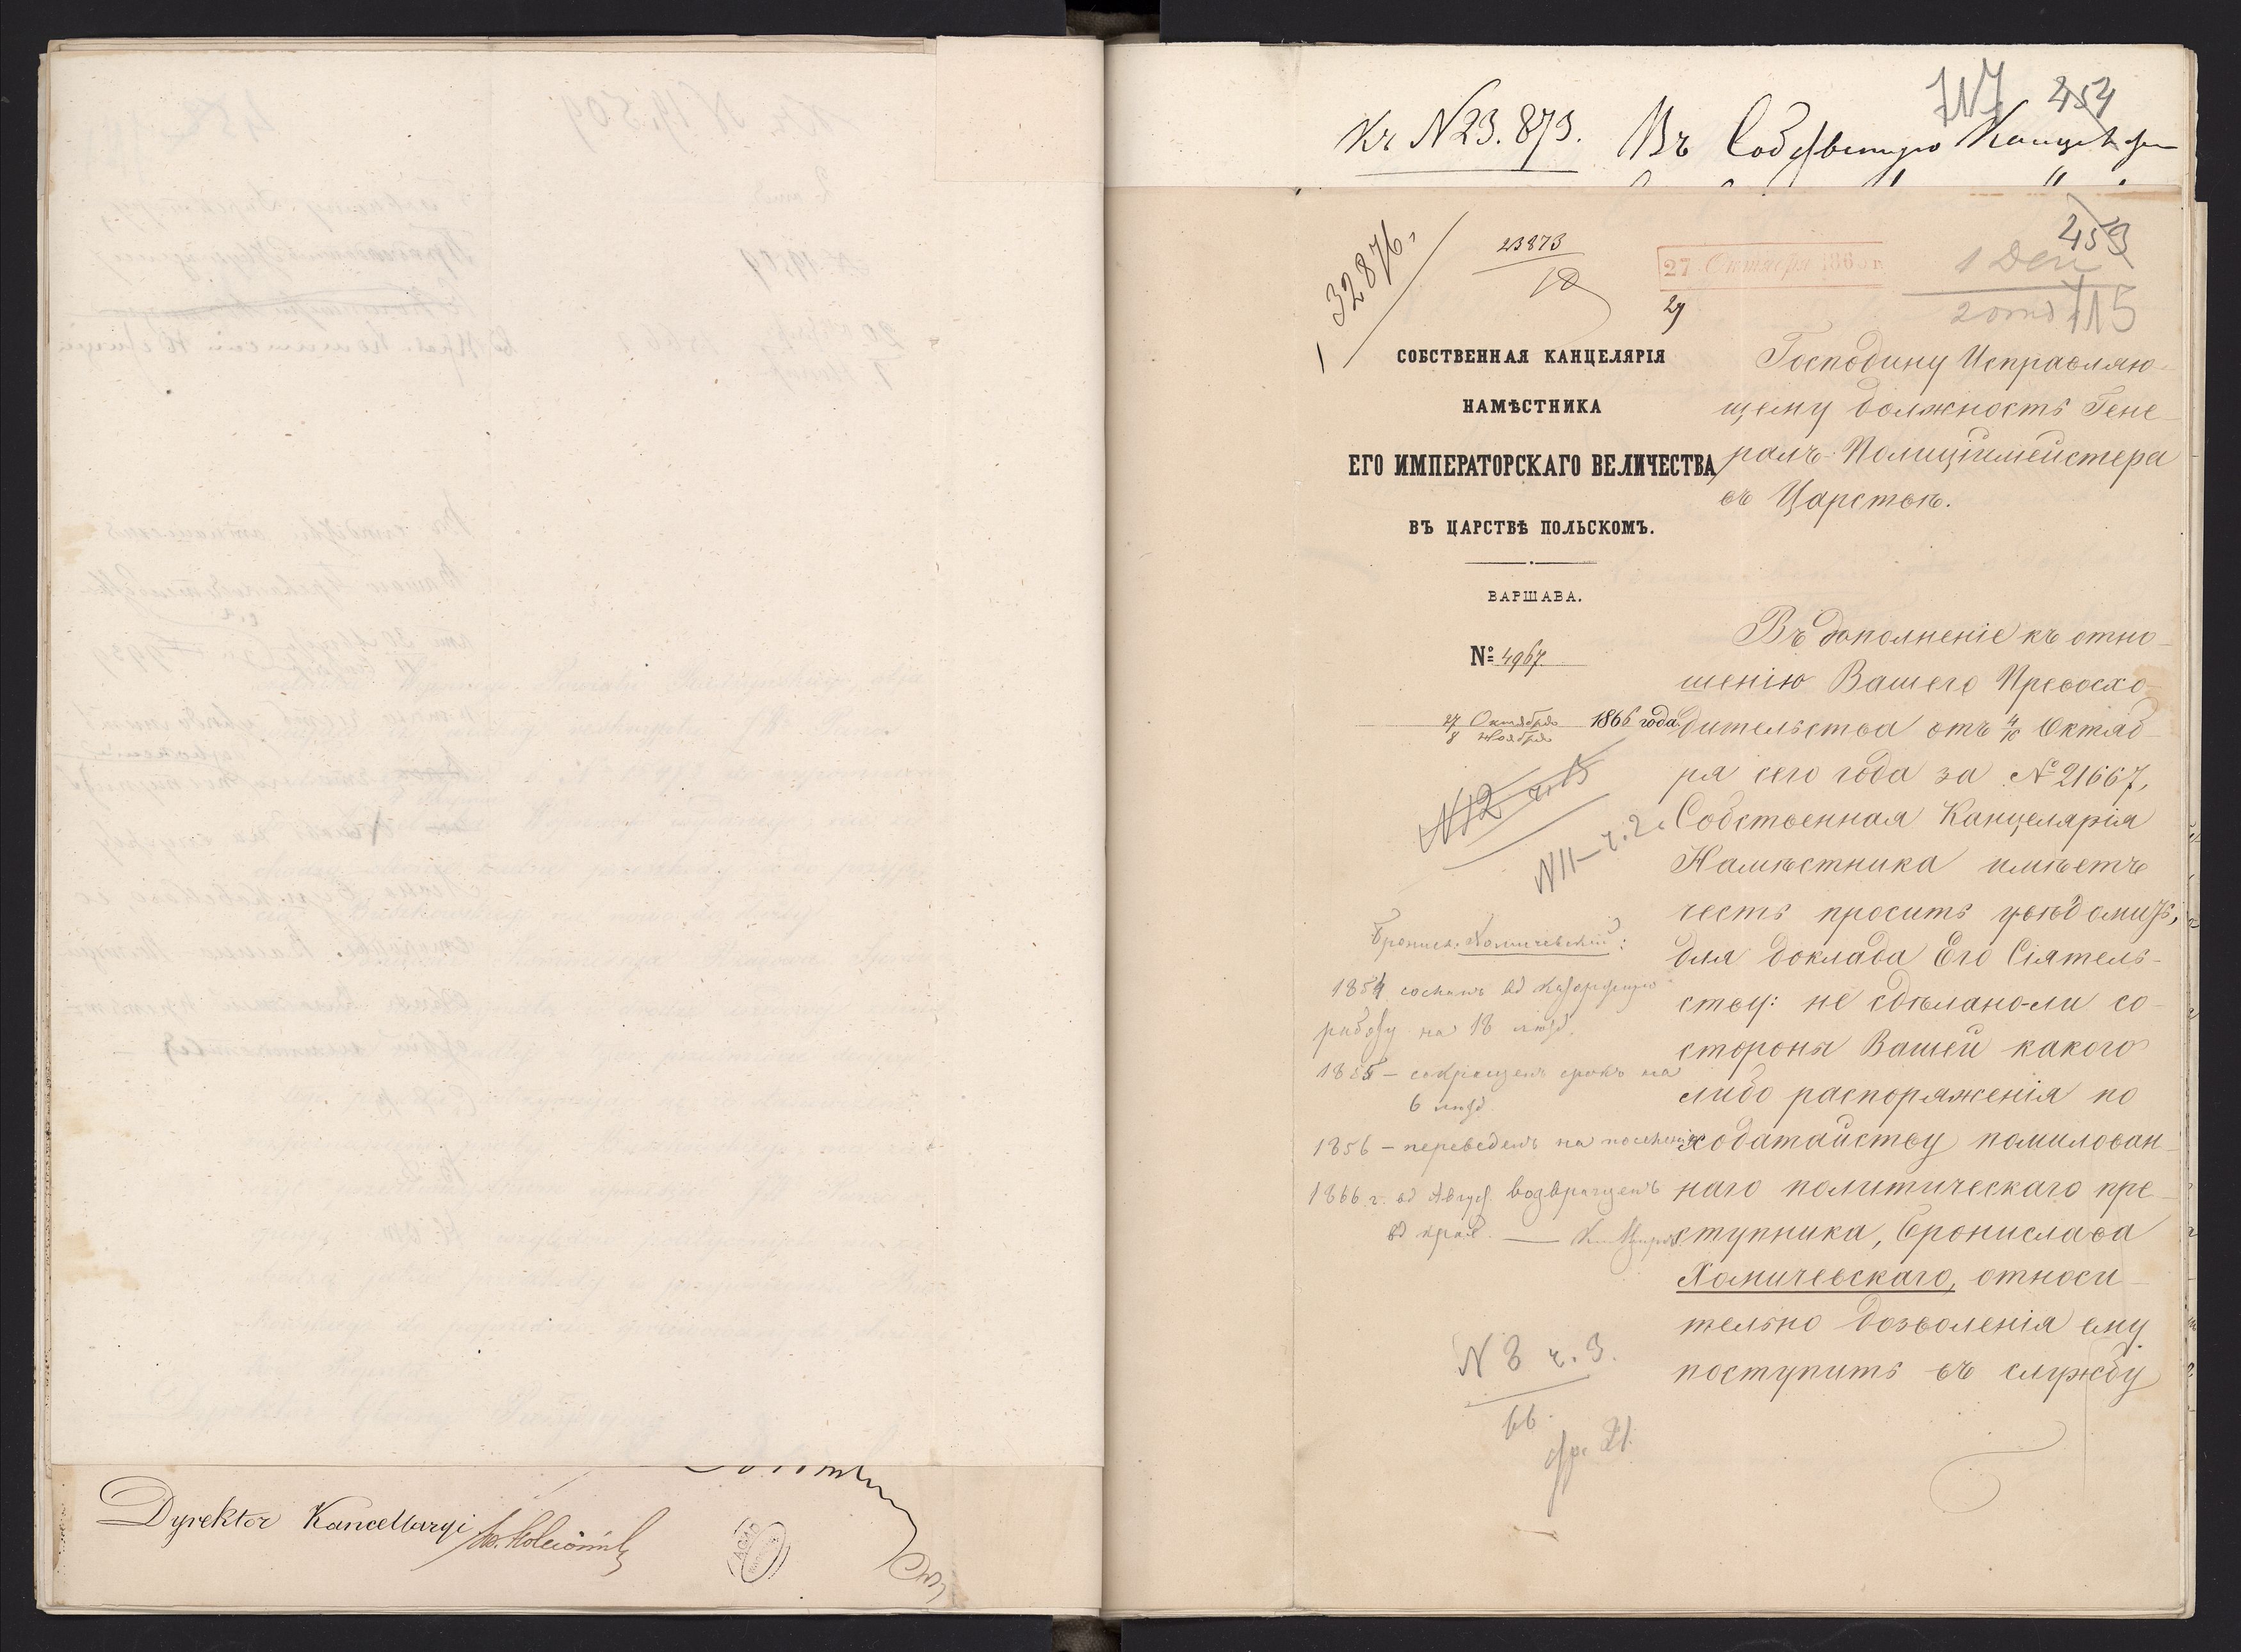 Dyrektor Kancellaryi
717 454
Къ N 23.873. Въ Собственную Канцеляр
32876.
23873
453
27 Октября 186 г.
1 Ден
29
2 отд 115
СОБСТВЕННАЯ КАНЦЕЛЯРІЯ
НАМѢСТНИКА
ЕГО ИМПЕРАТОРСКАГО ВЕЛИЧЕСТВА
ВЪ ЦАРСТВѢ ПОЛЬСКОМЪ.
ВАРШАВА.
№ 4967
27 Октября
8 Ноября
1866 года.
N 12 ч. 15
N 11 – ч. 2.
Бронисл. Хомичевский:
1854 сосланъ въ каторжную
работу на 18 лѣтъ.
1855 – сокращенъ срокъ на
6 лѣтъ
1856 – переведенъ на поселеніе
1866 г. въ Авгус возвращенъ
въ край. —
N 8 ч. 3.
66
стр. 21.
Господину Исправляю-
щему должность Гене-
ралъ-Полиціймейстера
въ Царствѣ.
Въ дополненіе къ отно-
шенію Вашего Превосхо-
дительства отъ 4/16 Октяб-
ря сего года за № 21667,
Собственная Канцелярія
Намѣстника имѣетъ
честь просить увѣдомить,
для доклада Его Сіятель-
ству: не сдѣлано-ли со
стороны Вашей какого
либо распоряженія по
ходатайству помилован-
наго политическаго пре-
ступника, Бронислава
Хомичевскаго, относи-
тельно дозволенія ему
поступить въ службу